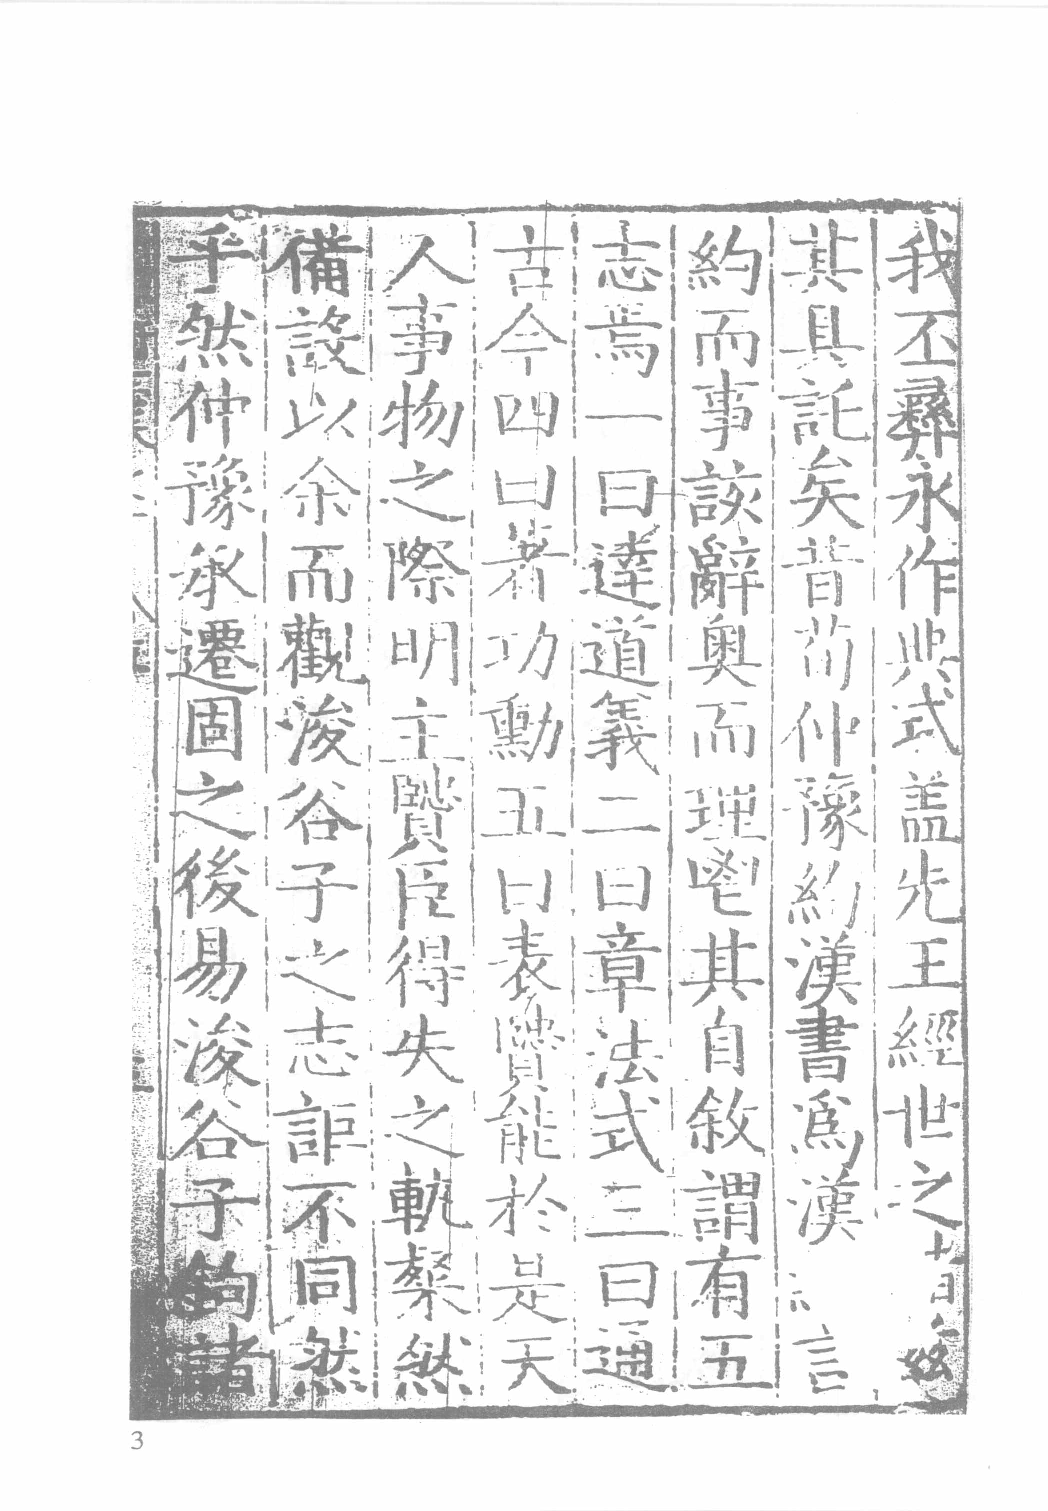 我丕彝永作典式盖先王經世之
其具託矣昔荀仲豫約漢書爲漢 言
約而事該辭奥而理鬯其自敘謂有五
志焉一曰達道義二曰章法式三曰通
古今四曰著功勳五曰表賢能於是天
人事物之際明主賢臣得失之軌粲然
備設以余而觀浚谷子之志詎不同然
乎然仲豫承遷固之後易浚谷子鉤諸
3